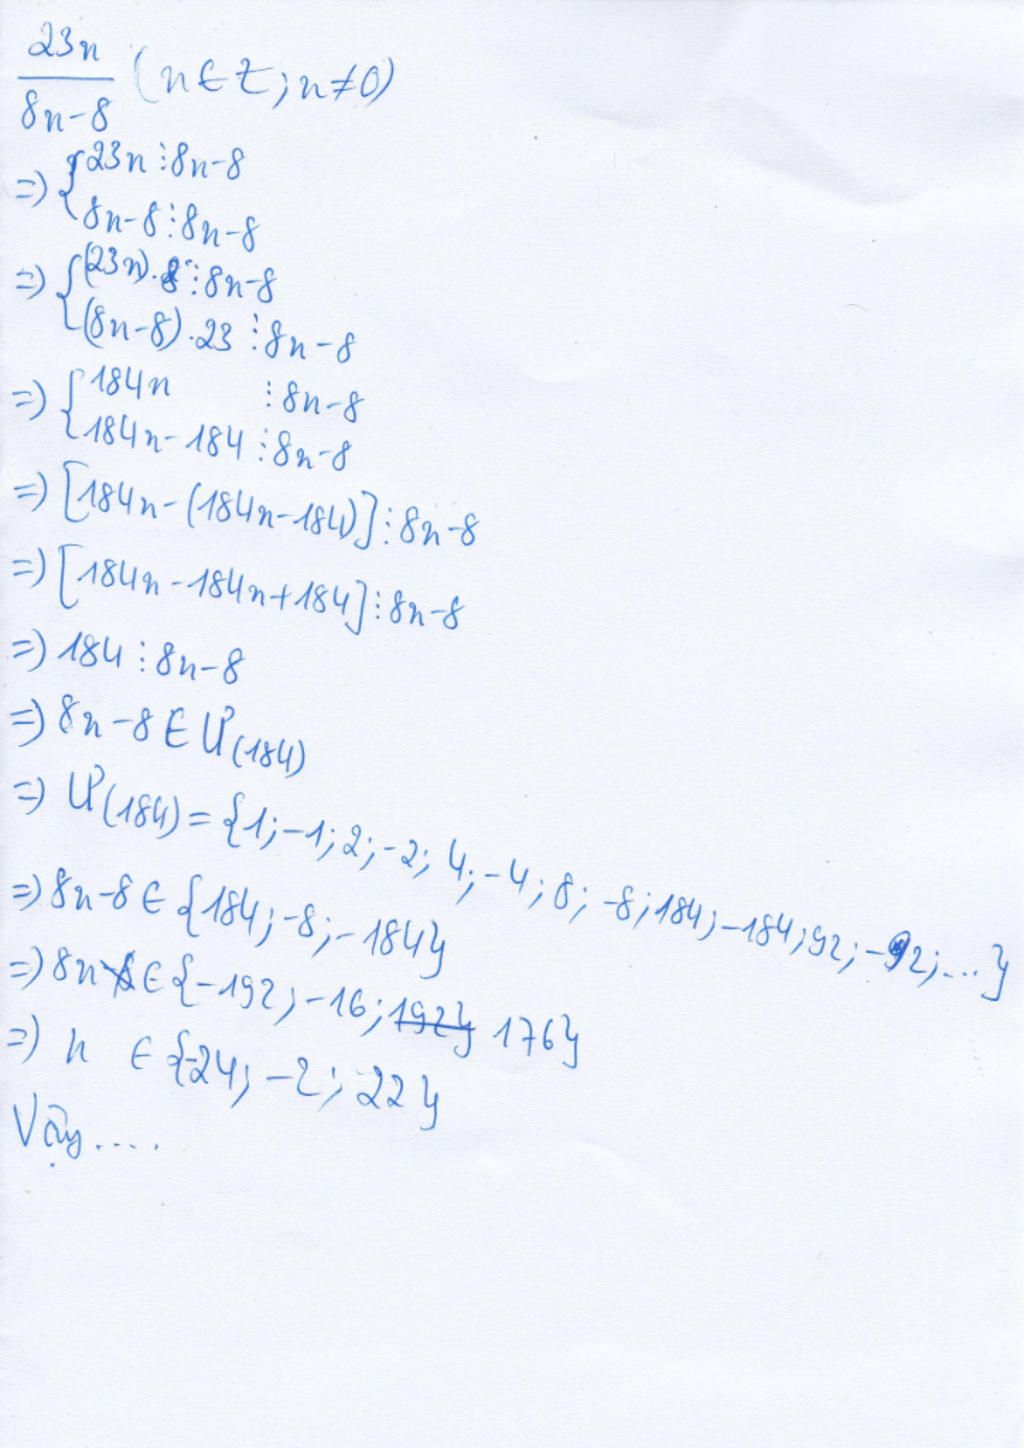 23n
8n-8 (n∈Z; n≠0)
=> { 23n ⋮ 8n-8
8n-8 ⋮ 8n-8
=> { (23n).8 ⋮ 8n-8
(8n-8).23 ⋮ 8n-8
=> { 184n ⋮ 8n-8
184n-184 ⋮ 8n-8
=> [184n-(184n-184)] ⋮ 8n-8
=> [184n-184n+184] ⋮ 8n-8
=> 184 ⋮ 8n-8
=> 8n-8 ∈ Ư(184)
=> Ư(184) = {1; -1; 2; -2; 4; -4; 8; -8; 184; -184; 92; -92; ...}
=> 8n-8 ∈ {184; -8; -184}
=> 8n ∈ {-192; -16; 192} 176}
=> n ∈ {-24; -2; 22}
Vậy....